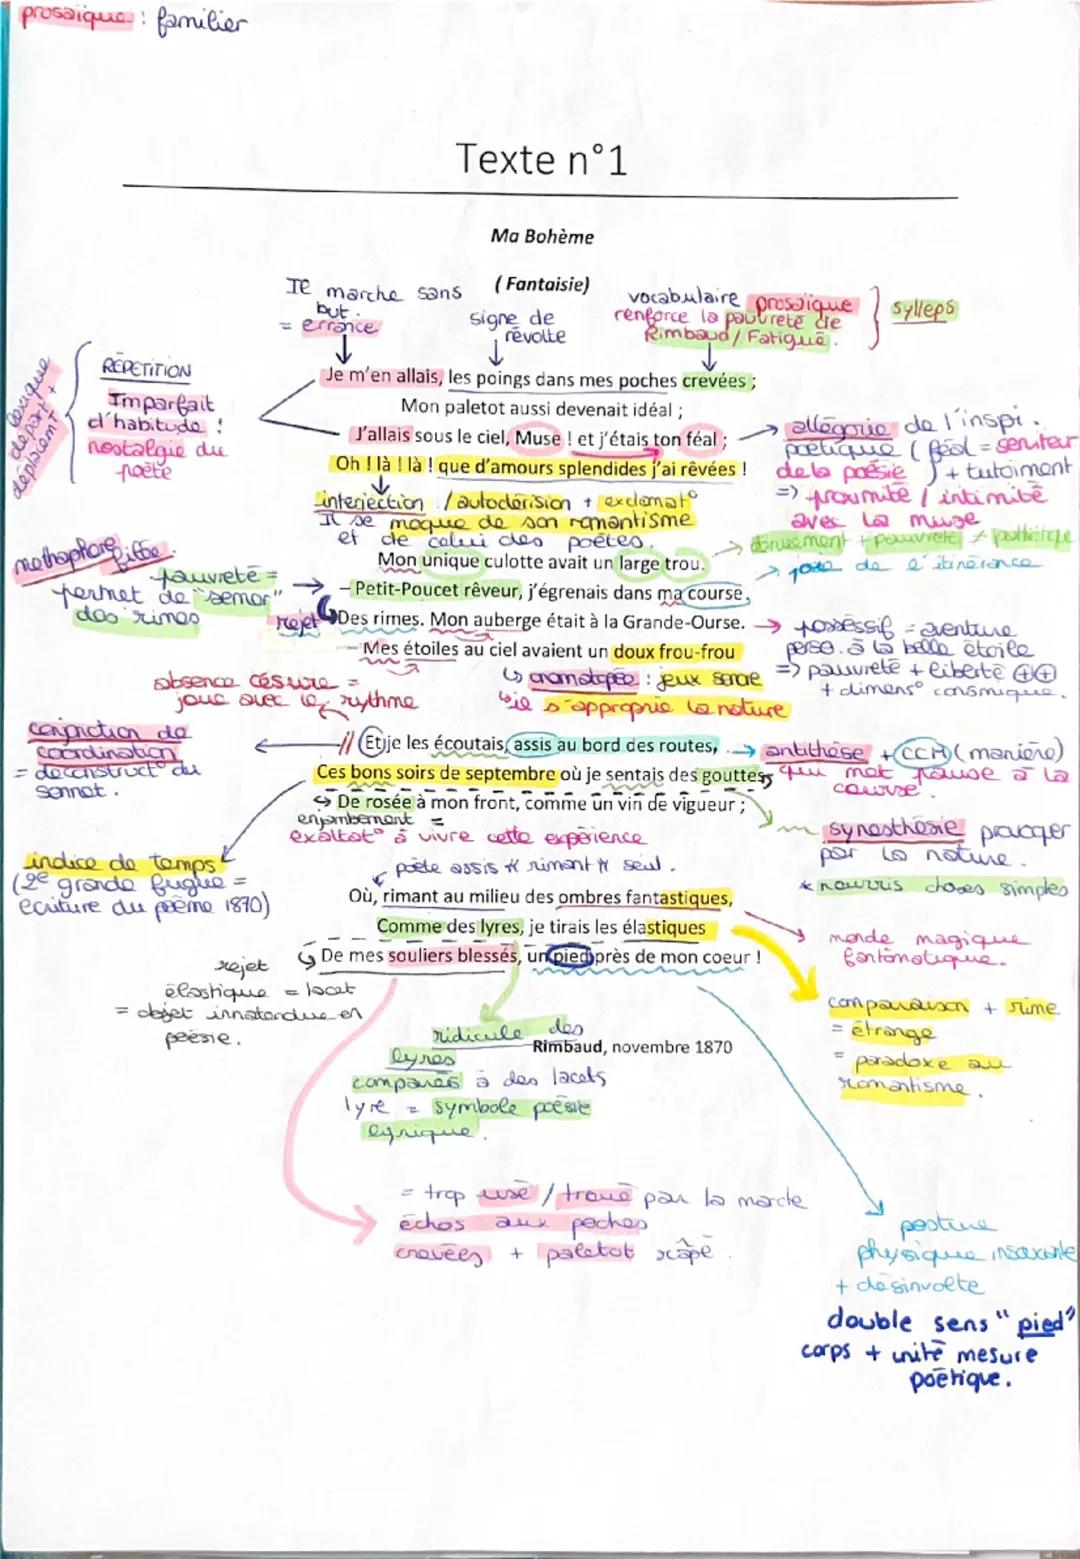 prosaïque : familier
Texte n°1
Ma Bohème
(Fantaisie)
Il marche sans
but.
= errance
signe de
révolte
vocabulaire prosaïque
renforce la pauvreté de
Rimbaud / Fatigué.
sylleps
lexique
départ +
déplacemt
RÉPÉTITION
Imparfait
d'habitude !
nostalgie du
poète
Je m'en allais, les poings dans mes poches crevées ;
Mon paletot aussi devenait idéal ;
J'allais sous le ciel, Muse ! et j'étais ton féal ;
Oh ! là ! là ! que d'amours splendides j'ai rêvées !
allégorie de l'inspi.
poétique ( féal = serviteur
de la poésie ) + tutoiment
=> proximité / intimité
avec la muse
interjection / autodérision + exclamat°
Il se moque de son romantisme
et de celui des poètes.
dénuement + pauvreté ≠ pathétique
joie de l'itinérance
methaphore filée.
pauvreté =
permet de "semer"
des rimes
Mon unique culotte avait un large trou.
– Petit-Poucet rêveur, j'égrenais dans ma course
rejet
Des rimes. Mon auberge était à la Grande-Ourse.
– Mes étoiles au ciel avaient un doux frou-frou
possessif = aventure
perso. à la belle étoile
=> pauvreté + liberté ++
+ dimens° cosmique.
absence césure =
joue avec le rythme
onomatopée : jeux sonore
il s'approprie la nature
conjonction de
coordination
= déconstruct° du
sonnet.
// Et je les écoutais, assis au bord des routes,
Ces bons soirs de septembre où je sentais des gouttes
De rosée à mon front, comme un vin de vigueur ;
antithèse + CCM (manière)
qui met pause à la
course.
enjambement =
exaltat° à vivre cette expérience
synesthésie provoquer
par la nature.
* nourris choses simples
indice de temps
(2e grande fugue =
écriture du poème 1870)
poète assis * rimant * seul.
Où, rimant au milieu des ombres fantastiques,
Comme des lyres, je tirais les élastiques
De mes souliers blessés, un pied près de mon coeur !
monde magique
fantomatique.
rejet
élastique = lacet
= objet innatendue en
poésie.
comparaison + rime
= étrange
= paradoxe au
romantisme.
ridicule des
lyres
comparés à des lacets
lyre = symbole poésie
lyrique.
Rimbaud, novembre 1870
= trop usé / troué par la marche
échos aux poches
crevées + paletot râpé.
posture
physique insouciante
+ désinvolte
double sens "pied"
corps + unité mesure
poétique.